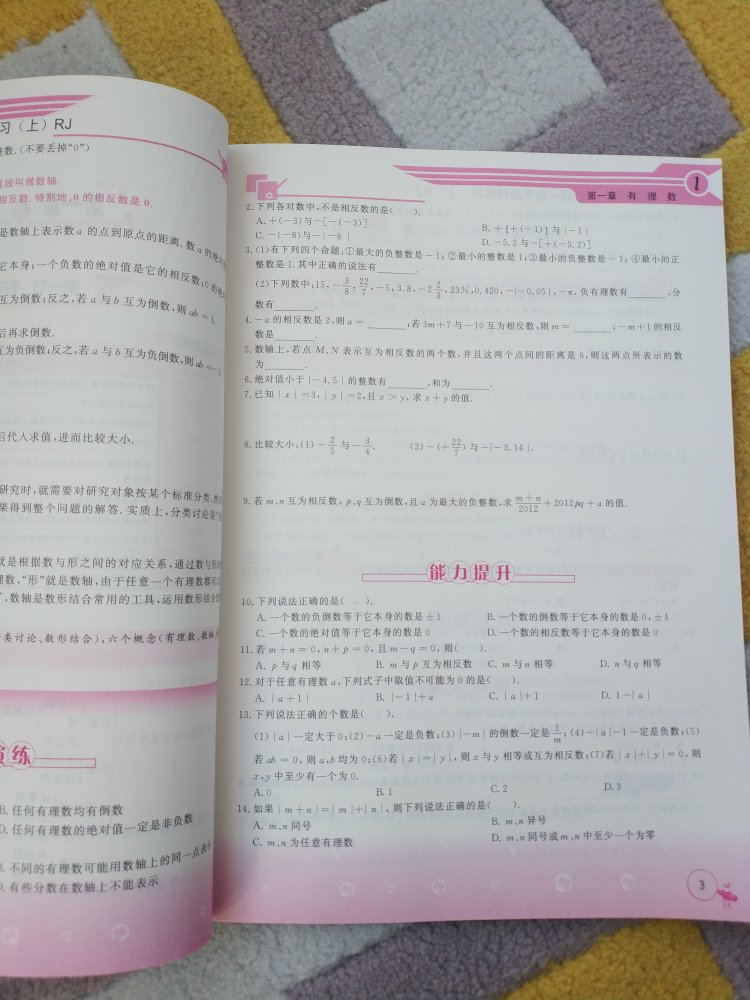 习（上）RJ
整数.(不要丢掉“0”)
直线叫做数轴.
相反数. 特别地,0 的相反数是 0.
是数轴上表示数 a 的点到原点的距离. 数 a 的绝对
它本身;一个负数的绝对值是它的相反数;0 的绝
互为倒数;反之,若 a 与 b 互为倒数,则 ab=1.
后再求倒数.
互为负倒数;反之,若 a 与 b 互为负倒数,则 ab=-1.
后代入求值,进而比较大小.
研究时,就需要对研究对象按某个标准分类,然后
果得到整个问题的解答. 实质上,分类讨论是“化
就是根据数与形之间的对应关系,通过数与形的
理数,“形”就是数轴,由于任意一个有理数都可以
了,数轴是数形结合常用的工具,运用数形结合思
类讨论、数形结合),六个概念(有理数、数轴、
演练
B. 任何有理数均有倒数
D. 任何有理数的绝对值一定是非负数
B. 不同的有理数可能用数轴上的同一点表示
D. 有些分数在数轴上不能表示
第一章 有 理 数
1
2. 下列各对数中,不是相反数的是( ).
A. +(-3)与-[-(-3)]
B. +[+(-1)] 与|-1|
C. -(-8)与|-8|
D. -5.2 与-[+(-5.2)]
3. (1)有下列四个命题:①最大的负整数是-1; ②最小的整数是1;③最小的负整数是-1;④最小的正
整数是 1. 其中正确的说法有________.
(2)下列数中:15,-3/8,22/7,-5,3.8,-2 2/3,23%,0.420,-|-0.05|,-π,负有理数有________,分
数有________.
4. -a 的相反数是 2,则 a=________;若 3m+7 与-10 互为相反数,则 m=________;-m+1 的相反
数是________.
5. 数轴上,若点 M、N 表示互为相反数的两个数,并且这两个点间的距离是 6,则这两点所表示的数
为________.
6. 绝对值小于|-4.5|的整数有________,和为________.
7. 已知|x|=3,|y|=2,且 x>y,求 x+y 的值.
8. 比较大小:(1)-2/5 与-3/4. (2)-(+22/7)与-|-3.14|.
9. 若 m、n 互为相反数,p、q 互为倒数,且 a 为最大的负整数,求 (m+n)/2012+2012pq+a 的值.
能力提升
10. 下列说法正确的是( ).
A. 一个数的负倒数等于它本身的数是±1
B. 一个数的倒数等于它本身的数是 0,±1
C. 一个数的绝对值等于它本身的数是 0
D. 一个数的相反数等于它本身的数是 0
11. 若 m+n=0,n+p=0,且 m-q=0,则( ).
A. p 与 q 相等 B. m 与 p 互为相反数 C. m 与 n 相等 D. n 与 q 相等
12. 对于任意有理数 a,下列式子中取值不可能为 0 的是( ).
A. |a+1| B. |-1|+a C. |a|+1 D. 1-|a|
13. 下列说法正确的个数是( ).
(1)|a|一定大于 0;(2)-a 一定是负数;(3)|-m|的倒数一定是 1/m;(4)-|a|-1 一定是负数;(5)
若 ab=0,则 a,b 均为 0;(6)若|x|=|y|,则 x 与 y 相等或互为相反数;(7)若|x|+|y|=0,则
x,y 中至少有一个为 0.
A. 0 B. 1 C. 2 D. 3
14. 如果|m+n|=|m|+|n|,则下列说法正确的是( ).
A. m、n 同号
B. m、n 异号
C. m、n 为任意有理数
D. m、n 同号或 m、n 中至少一个为零
3